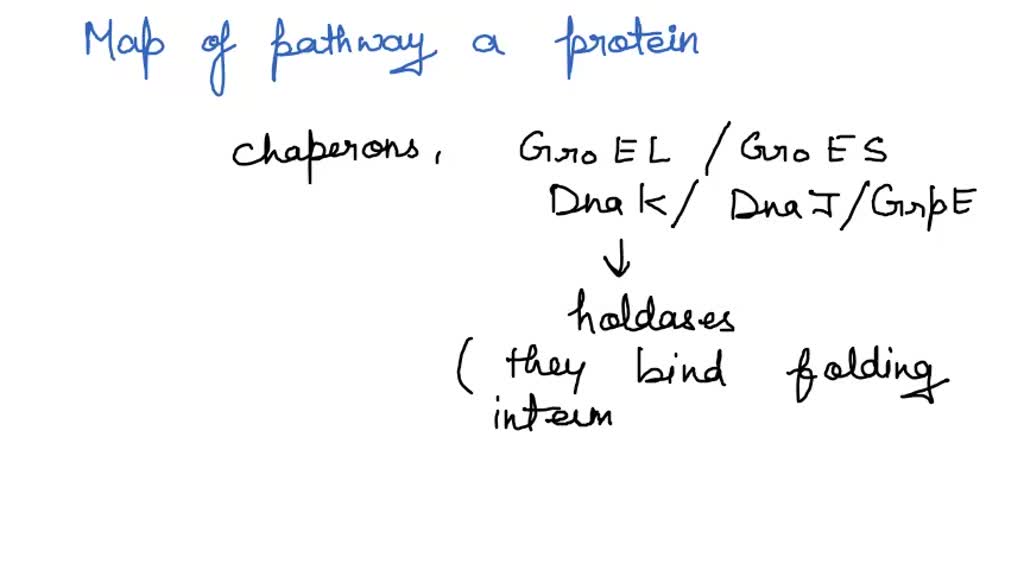 Map of pathway a protein
chaperons, GroEL / GroES
DnaK / DnaJ / GrpE
↓
holdases
( they bind folding
interm